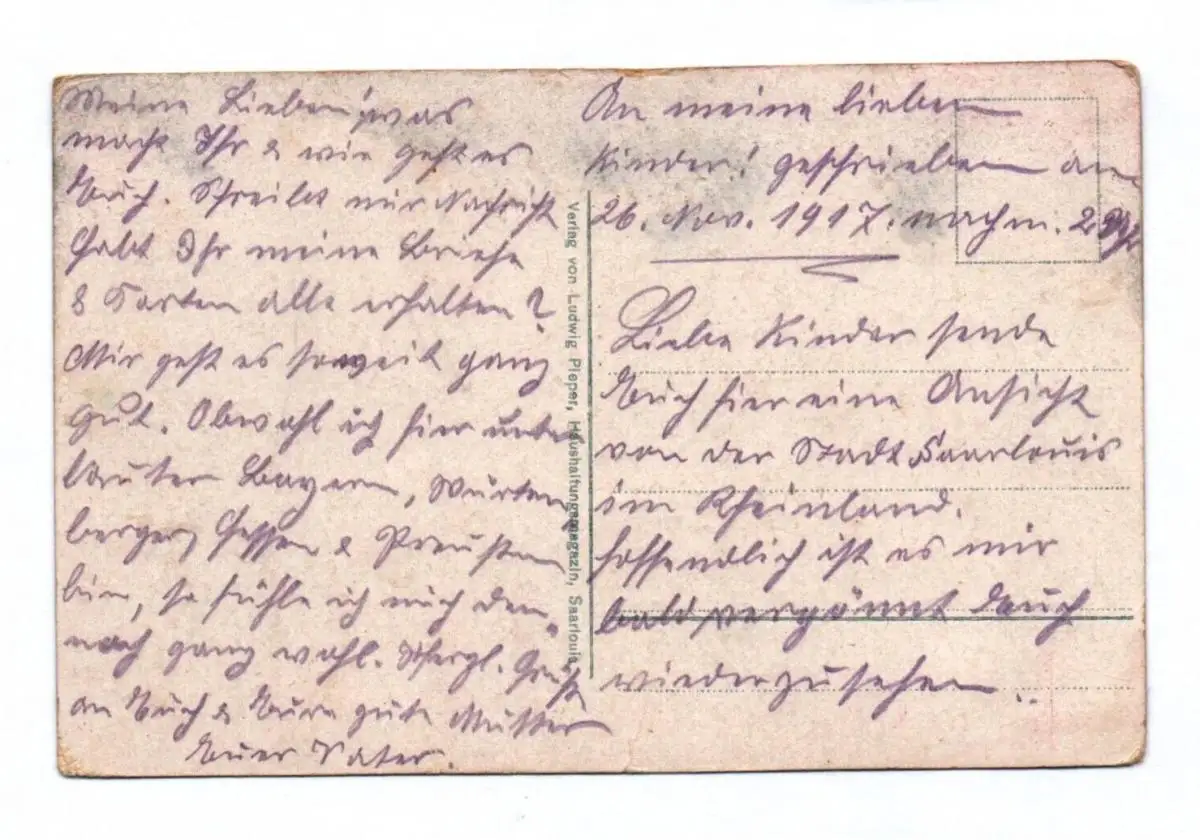 Meine Lieben! was
macht Ihr & wie geht es
Euch. Schreibt mir Nachricht
habt Ihr meine Briefe
& Karten alle erhalten?
Mir geht es soweit ganz
gut. Obwohl ich hier unter
lauter Bayern, Würten
berger, Hessen & Preusen
bin, so fühle ich mich den„
noch ganz wohl. Hergl. Grüße
an Euch & Eure gute Mutter
Euer Vater.
Verlag von Ludwig Pieper, Haushaltungsmagazin, Saarlouis
An meine lieben
Kinder! geschrieben am
26. Nov. 1917. nachm. 2 Uhr
Liebe Kinder sende
Euch hier eine Ansicht
von der Stadt Saarlouis
im Rheinland.
Hoffendlich ist es mir
bald vergönnt Euch
wiederzusehen..